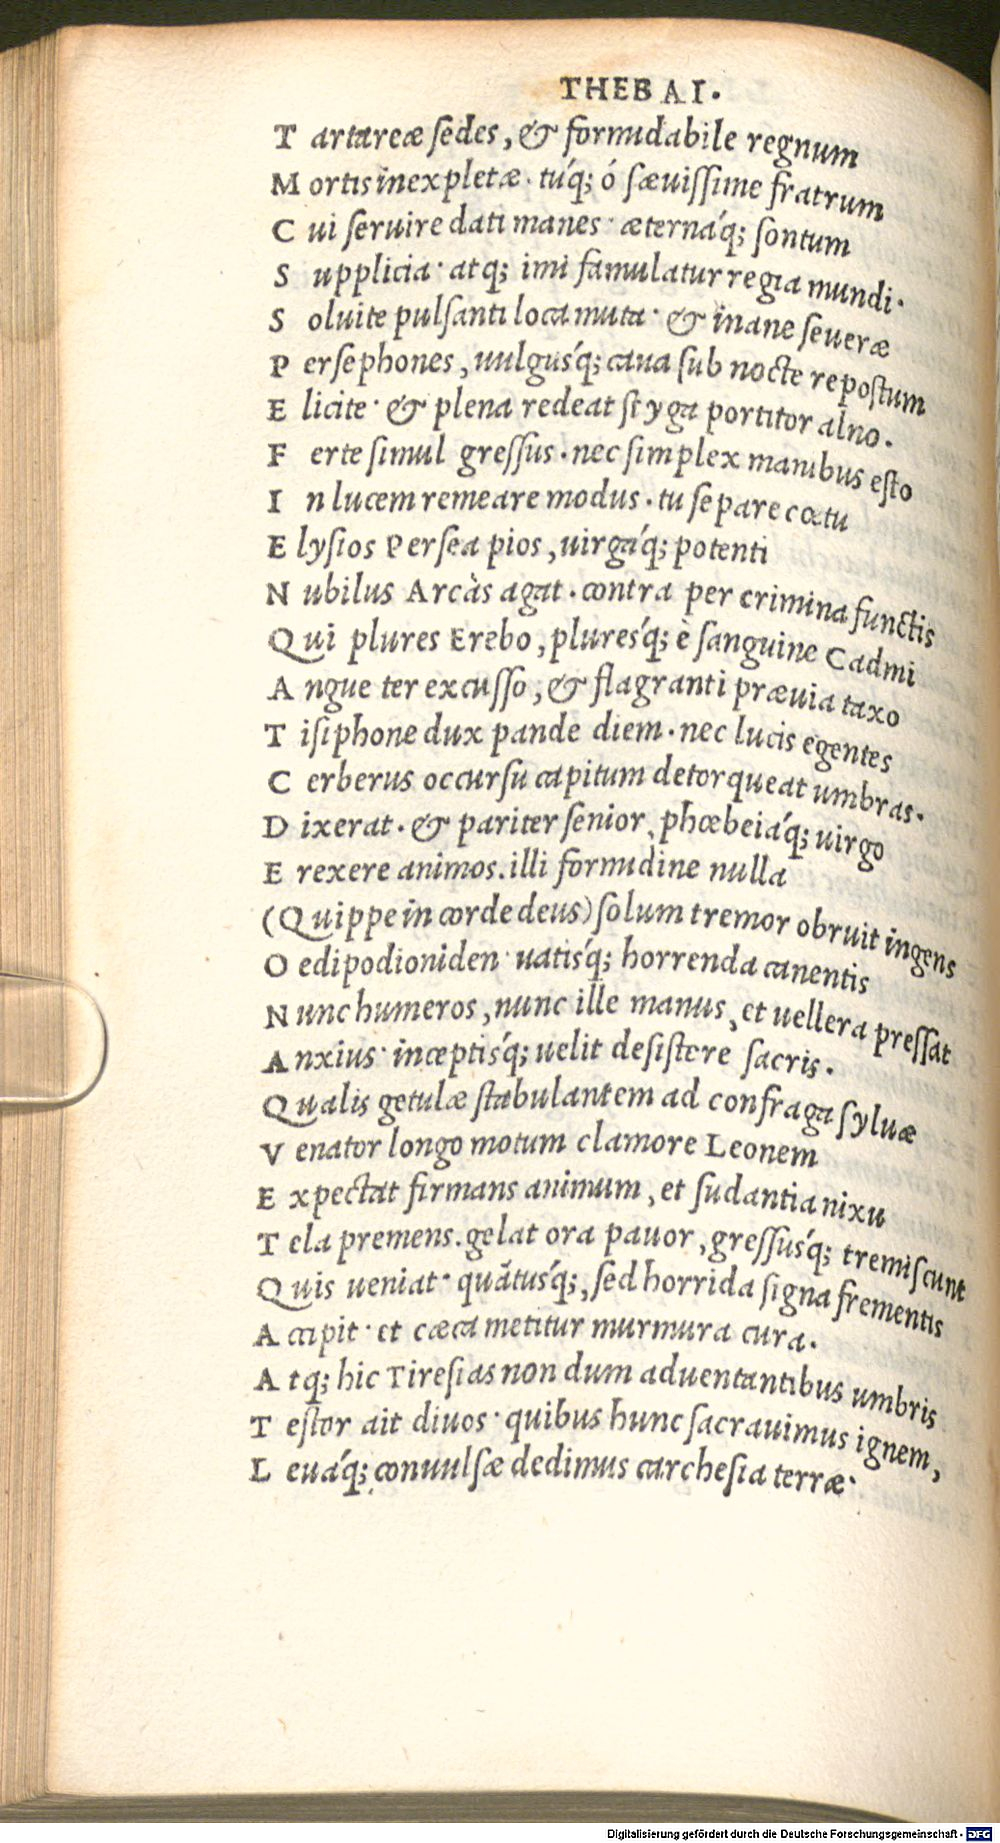 THEBAI.
T artareæ ſedes, & formidabile regnum
M ortis inexpletæ. túq; ó ſæuiſſime fratrum
C ui ſeruire dati manes· æternáq; ſontum
S upplicia· atq; imi famulatur regia mundi.
S oluite pulſanti loca muta· & inane ſeueræ
P erſephones, uulguſq́; caua ſub nocte repoſtum
E licite· & plena redeat ſtyga portitor alno.
F erte ſimul greſſus. nec ſimplex manibus eſto
I n lucem remeare modus. tu ſepare cœtu
E lyſios Perſea pios, uirgáq; potenti
N ubilus Arcàs agat. contra per crimina functis
Q ui plures Erebo, pluresq́; è ſanguine Cadmi
A ngue ter excuſſo, & flagranti præuia taxo
T iſiphone dux pande diem. nec lucis egentes
C erberus occurſu capitum detorqueat umbras.
D ixerat. & pariter ſenior, phœbeiáq; uirgo
E rexere animos. illi formidine nulla
(Quippe in corde deus) ſolum tremor obruit ingens
O edipodioniden· uatisq́; horrenda canentis
N unc humeros, nunc ille manus, et uellera preſſat
A nxius· inceptisq́; uelit deſiſtere ſacris.
Q ualis getulæ ſtabulantem ad confraga ſyluæ
V enator longo motum clamore Leonem
E xpectat firmans animum, et ſudantia nixu
T ela premens. gelat ora pauor, greſſusq́; tremiſcunt
Q uis ueniat· quãtusq́;, ſed horrida ſigna frementis
A ccipit· et cæca metitur murmura cura.
A tq; hic Tireſias non dum aduentantibus umbris
T eſtor ait diuos· quibus hunc ſacrauimus ignem,
L euáq; conuulſæ dedimus carcheſia terræ·
Digitalisierung gefördert durch die Deutsche Forschungsgemeinschaft - DFG